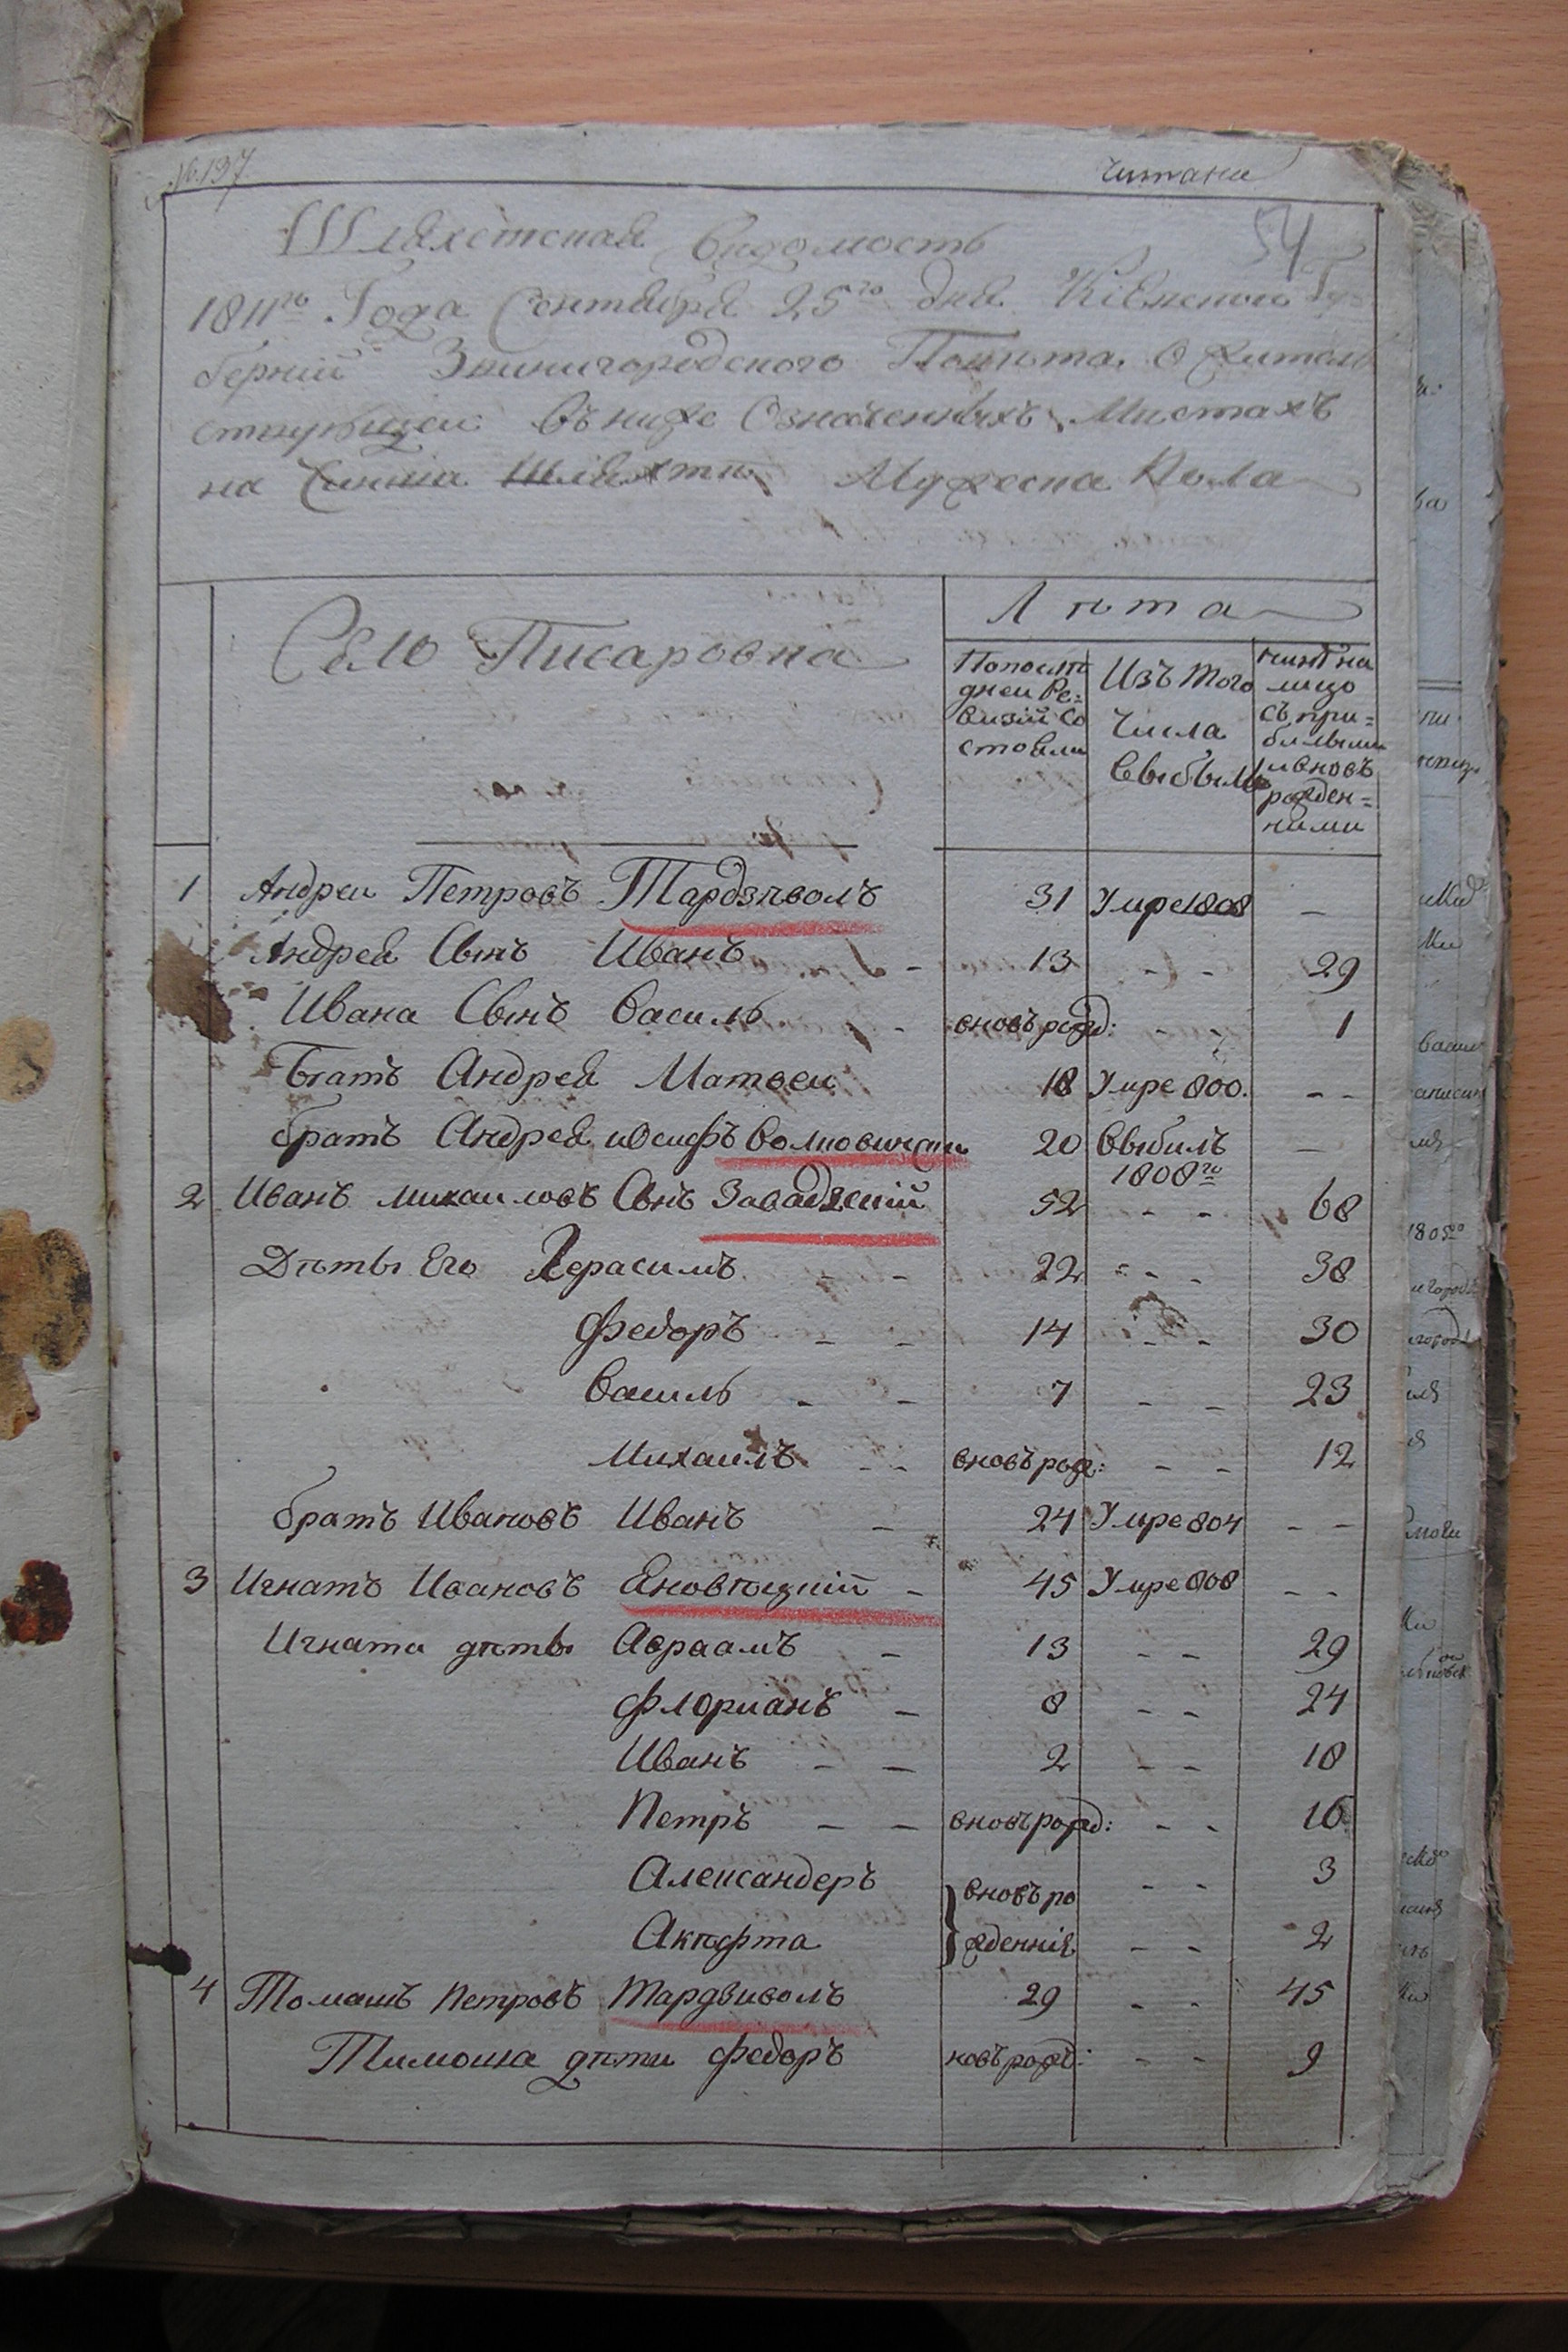 № 197
читани
54
Шляхетская Ведомость
1811го Года Сентября 25го дня Кіевской Гу
берніи Звинигородского Повѣта, О жител
ствующеи въ ниже Означенныхъ Мистахъ
на Чинша Шляхти, Мужеска Пола
Село Писаровка
Лѣта
Попослѣ
дней Ре=
визіи Со
стояли
Изъ того
Числа
Выбыли
нынѣ на
лицо
съ при=
билыми
и вновъ
рожден=
ними
1 Андреи Петровъ Тардзѣволъ 31 Умре 1808 —
Андрея Сынъ Иванъ - 13 - - 29
Ивана Сынъ Василь - вновъ рожд: - - 1
Братъ Андрея Матвеи 18 Умре 800. - -
братъ Андрея иосифъ 20 Выбилъ —
1808го
2 Иванъ михаиловъ Сынъ Завадзкій 52 - - 68
Дѣты Его Герасимъ - - 22 - - 38
Федоръ - - 14 - - 30
Василь - - 7 - - 23
Михаилъ - - вновъ рож: - - 12
братъ Ивановъ Иванъ - 24 Умре 804 - -
3 Игнатъ Ивановъ - 45 Умре 808 - -
Игната дѣты Авраамъ - 13 - - 29
Флоріанъ - 8 - - 24
Иванъ - - 2 - - 18
Петръ - - вновъ рожд: - - 16
Александеръ } вновъ ро - - 3
Акпфта } жденнія - - 2
4 Томашъ Петровъ Тардзиволъ 29 - - 45
Тимоша дѣти Федоръ новъ рожд: - - 9